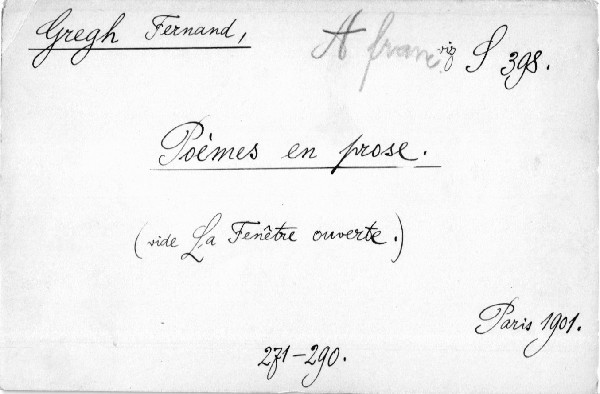 Gregh Fernand, A franc S 398.
Poèmes en prose.
(vide La Fenêtre ouverte.)
Paris 1901.
271-290.